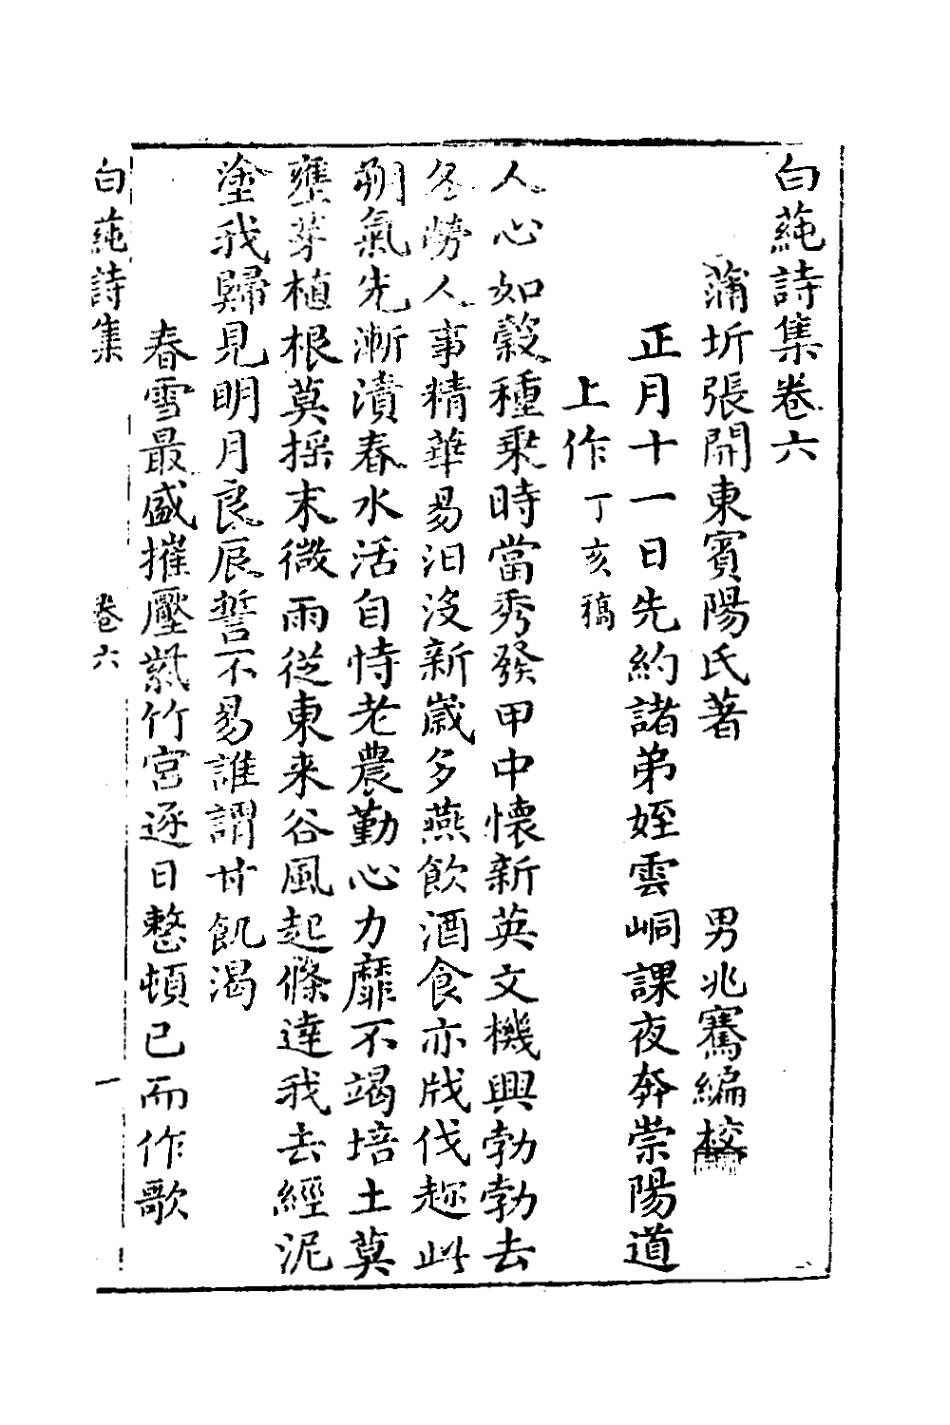 白蒓詩集卷六
蒲圻張開東賓陽氏著　男兆騫編校
正月十一日先約諸弟姪雲峒課夜奔崇陽道
上作丁亥稿
人心如穀種乘時當秀發甲中懷新英文機興勃勃去
冬勞人事精華易汨沒新歲多燕飲酒食亦戕伐趂此
朔氣先漸漬春水活自恃老農勤心力靡不竭培土莫
壅芽植根莫揺末微雨從東来谷風起條達我去經泥
塗我歸見明月良辰誓不易誰謂甘飢渴
春雪最盛摧壓紫竹宮逐日整頓已而作歌
白蒓詩集　卷六　一